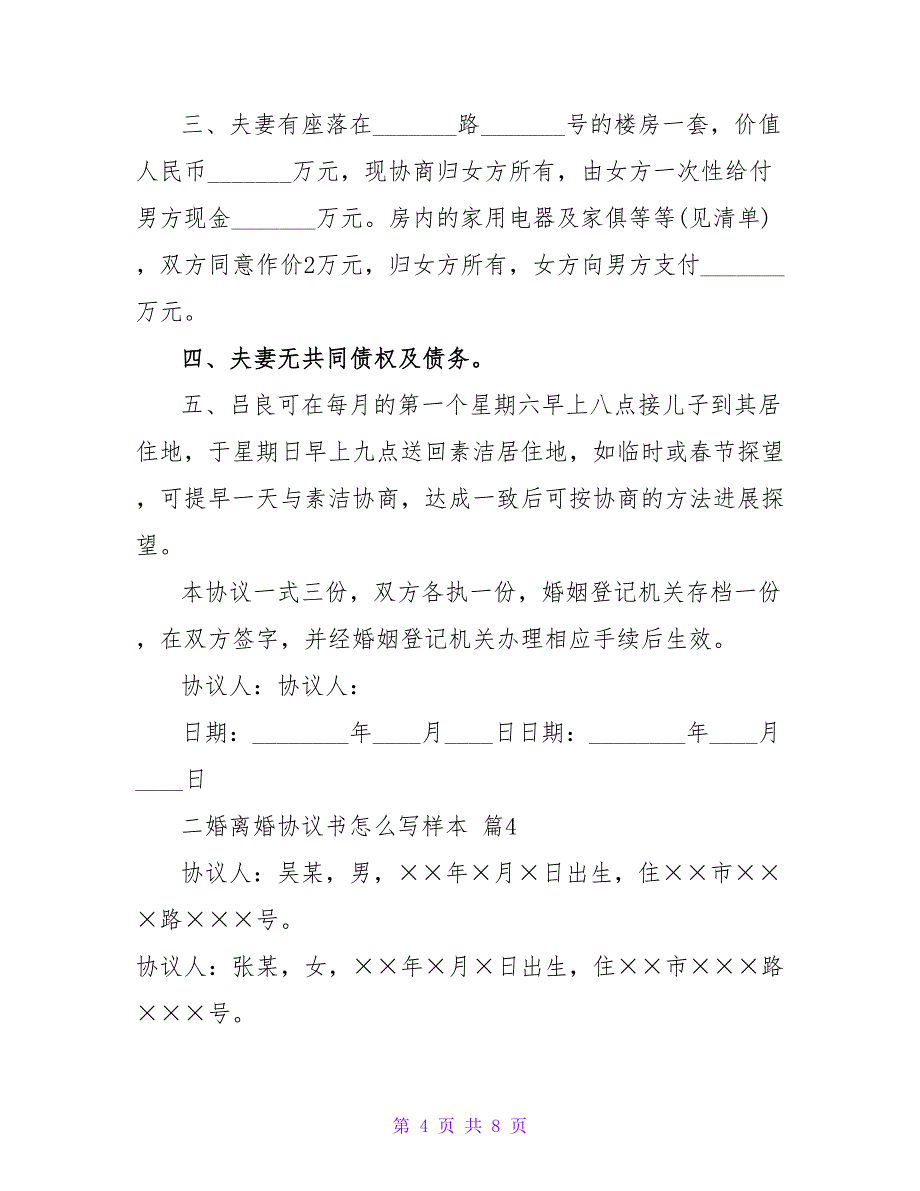 三、夫妻有座落在_______路_______号的楼房一套，价值
人民币_______万元，现协商归女方所有，由女方一次性给付
男方现金_______万元。房内的家用电器及家俱等等(见清单)
，双方同意作价2万元，归女方所有，女方向男方支付_______
万元。
四、夫妻无共同债权及债务。
五、吕良可在每月的第一个星期六早上八点接儿子到其居
住地，于星期日早上九点送回素洁居住地，如临时或春节探望
，可提早一天与素洁协商，达成一致后可按协商的方法进展探
望。
本协议一式三份，双方各执一份，婚姻登记机关存档一份
，在双方签字，并经婚姻登记机关办理相应手续后生效。
协议人：协议人：
日期：________年____月____日日期：________年____月
____日
二婚离婚协议书怎么写样本 篇4
协议人：吴某，男，××年×月×日出生，住××市××
×路×××号。
协议人：张某，女，××年×月×日出生，住××市×××路
×××号。
第 4 页 共 8 页